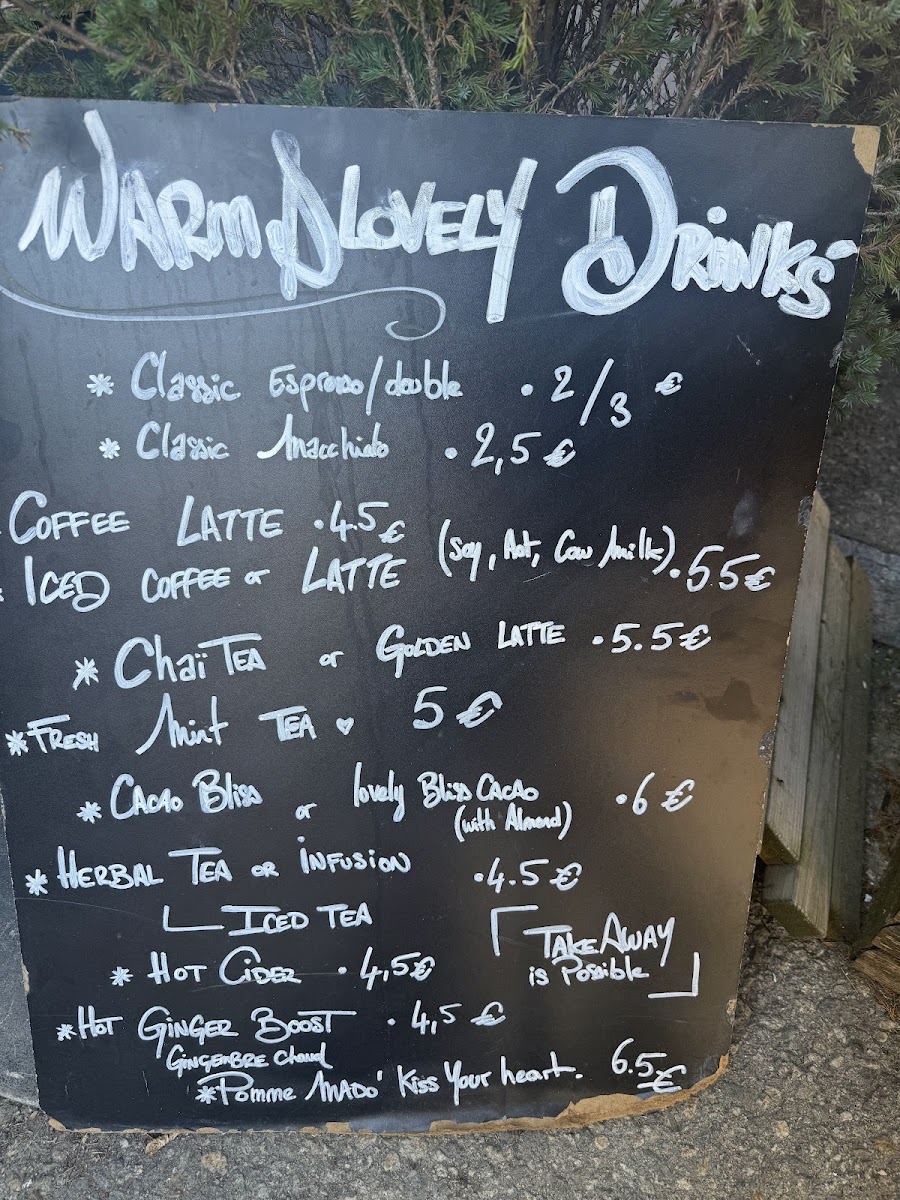 WARM & LOVELY DRINKS
* Classic Espresso/double • 2/3 €
* Classic Macchiato • 2,5 €
COFFEE LATTE • 4.5 €
ICED COFFEE or LATTE (Soy, Oat, Cow Milk) • 5.5 €
* Chaï TEA or GOLDEN LATTE • 5.5 €
* FRESH Mint TEA ♥ 5 €
* CACAO Bliss or lovely Bliss CACAO • 6 €
(with Almond)
* HERBAL TEA OR INFUSION • 4.5 €
ICED TEA
TAKE AWAY
is Possible
* HOT CIDER • 4,5 €
* HOT GINGER BOOST • 4,5 €
GINGEMBRE chaud
* Pomme MADO' Kiss Your heart. 6.5 €